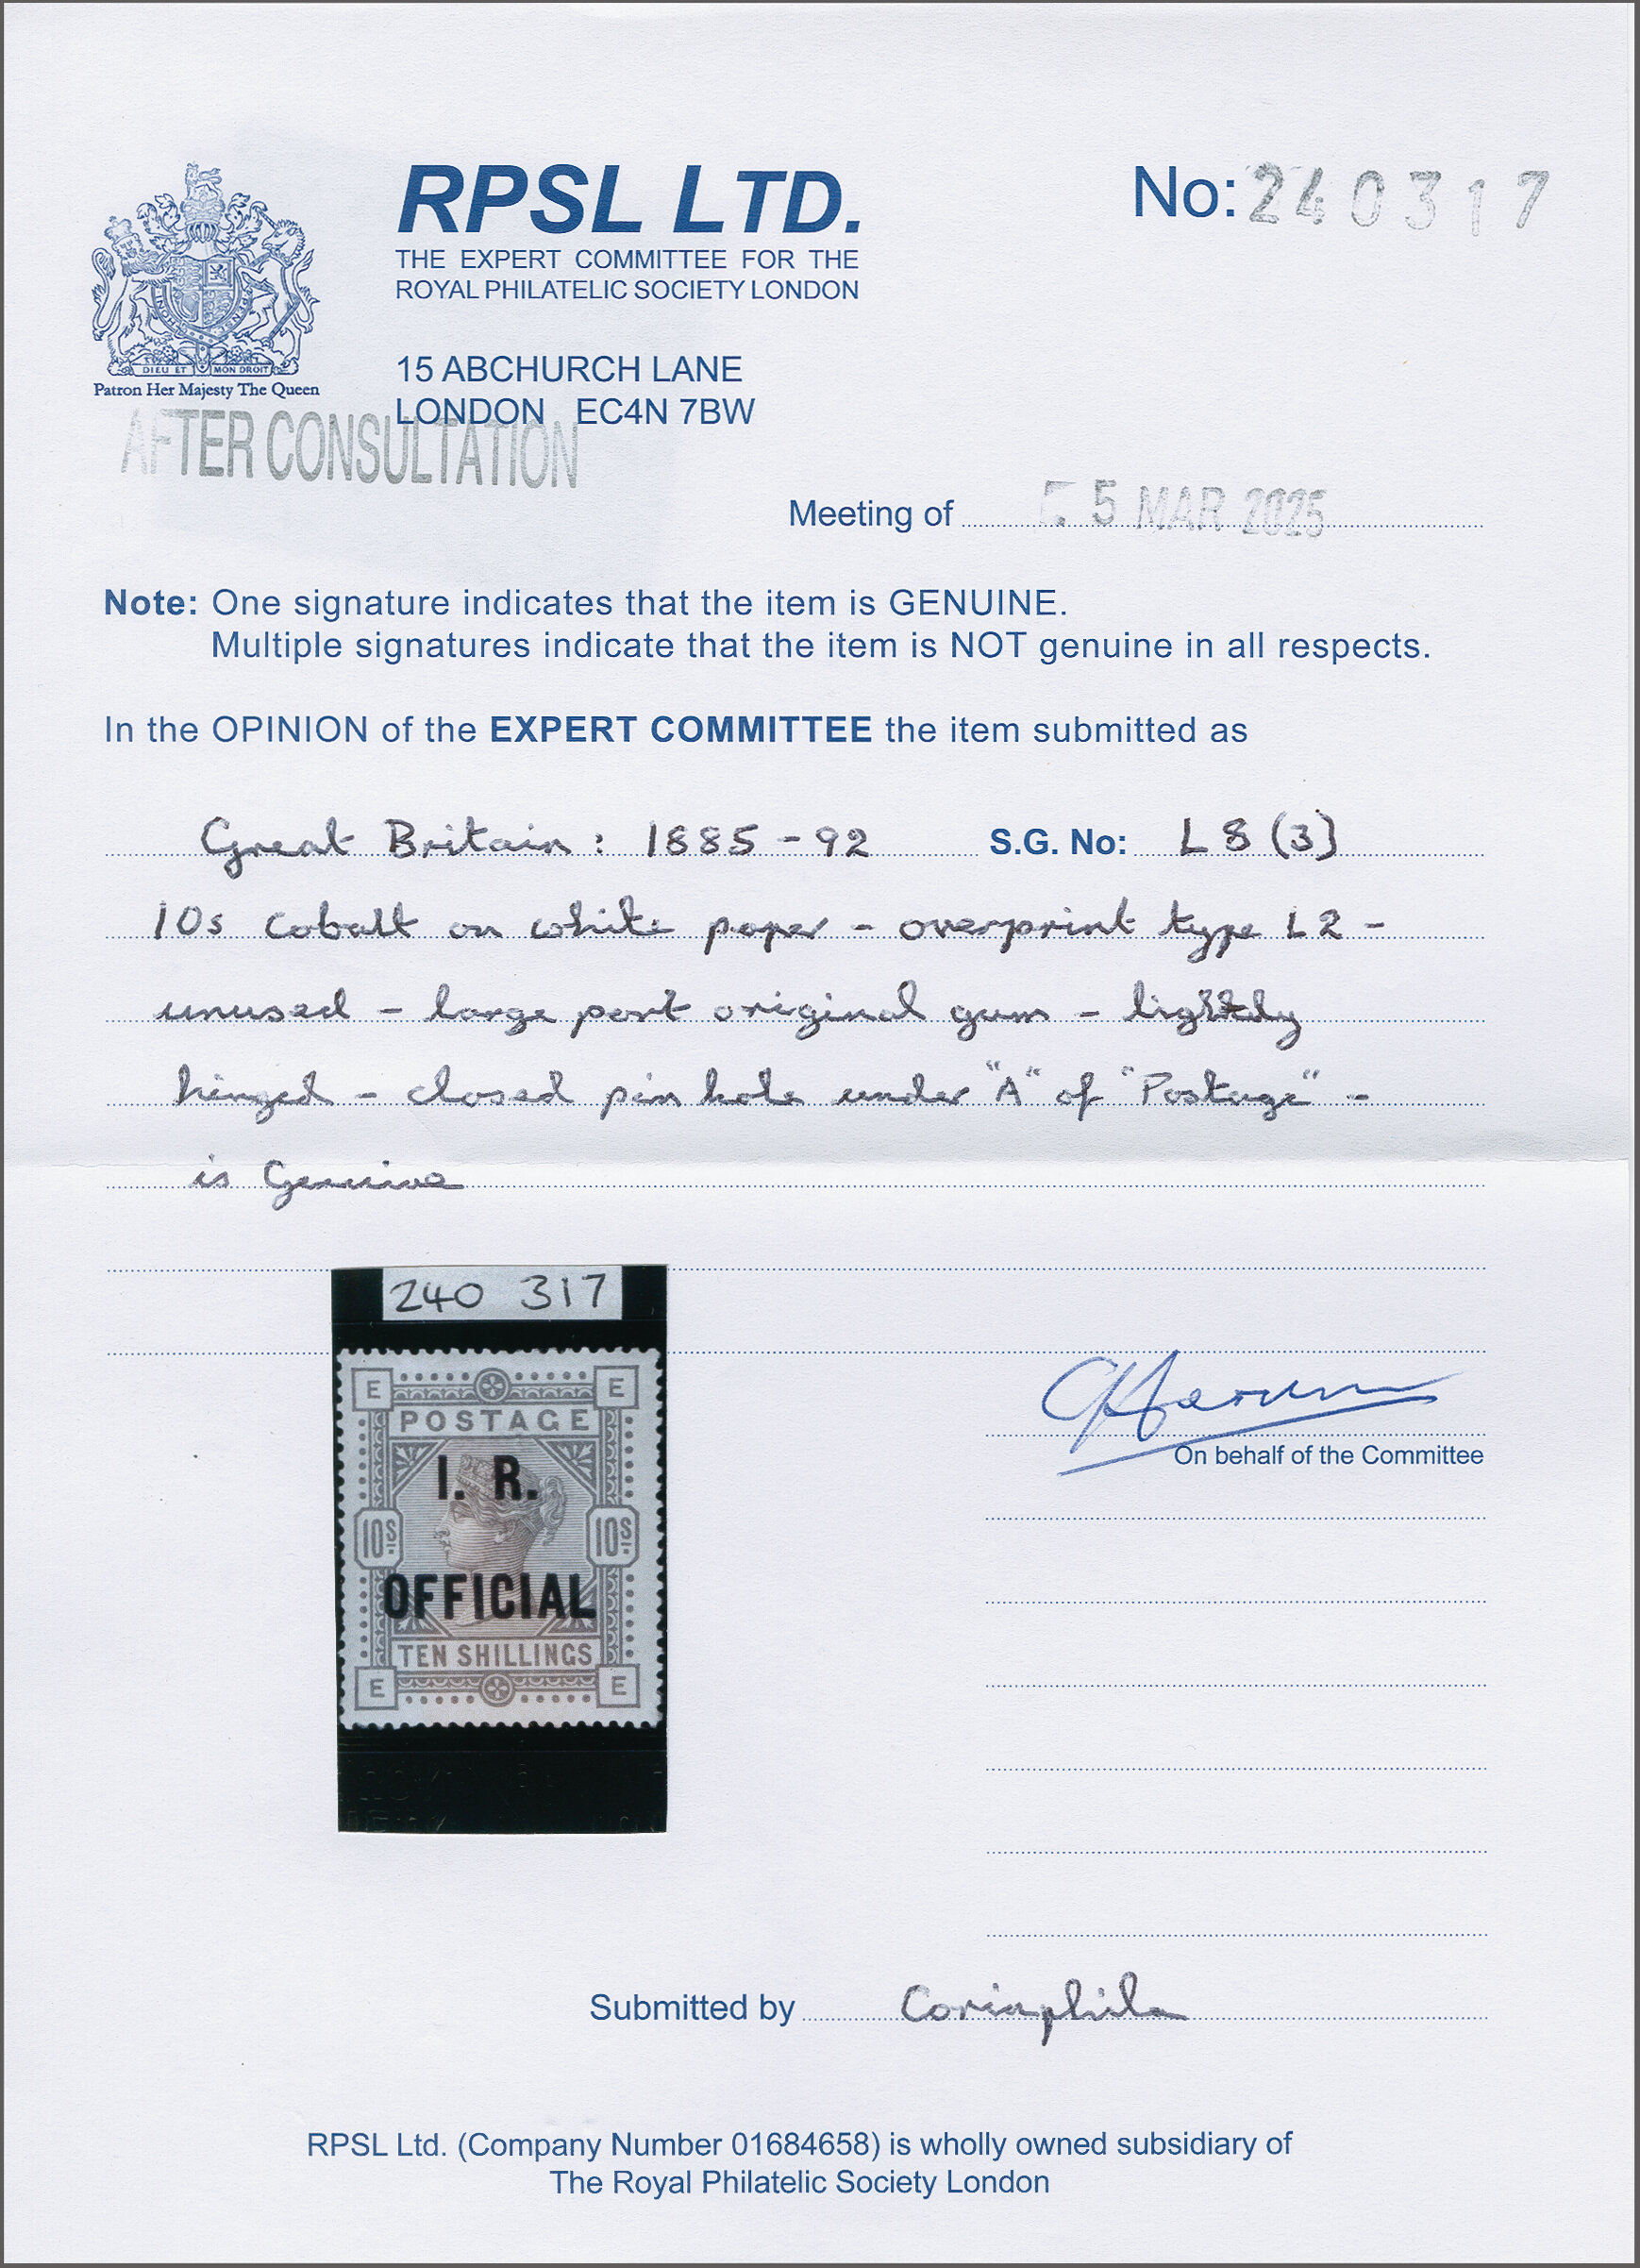 RPSL LTD.
THE EXPERT COMMITTEE FOR THE
ROYAL PHILATELIC SOCIETY LONDON
No: 240317
DIEU ET MON DROIT
Patron Her Majesty The Queen
15 ABCHURCH LANE
LONDON EC4N 7BW
AFTER CONSULTATION
Meeting of 5 MAR 2025
Note: One signature indicates that the item is GENUINE.
Multiple signatures indicate that the item is NOT genuine in all respects.
In the OPINION of the EXPERT COMMITTEE the item submitted as
Great Britain: 1885-92 S.G. No: L8 (3)
10s cobalt on white paper - overprint type L2 -
unused - large part original gum - lightly
hinged - closed pin hole under "A" of "Postage" -
is Genuine
240 317
E E
POSTAGE
I. R.
10S 10S
OFFICIAL
TEN SHILLINGS
E E
On behalf of the Committee
Submitted by Corinphila
RPSL Ltd. (Company Number 01684658) is wholly owned subsidiary of
The Royal Philatelic Society London